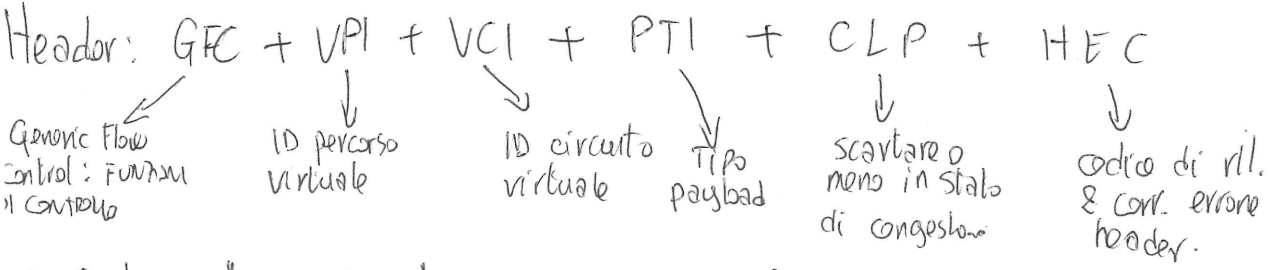 Header: GFC + VPI + VCI + PTI + CLP + HEC
Generic Flow
ontrol: FUNZIONI
DI CONTROLLO
ID percorso
virtuale
ID circuito
virtuale
TIPO
payload
scartare o
meno in stato
di congestione
codice di ril.
& corr. errore
header.